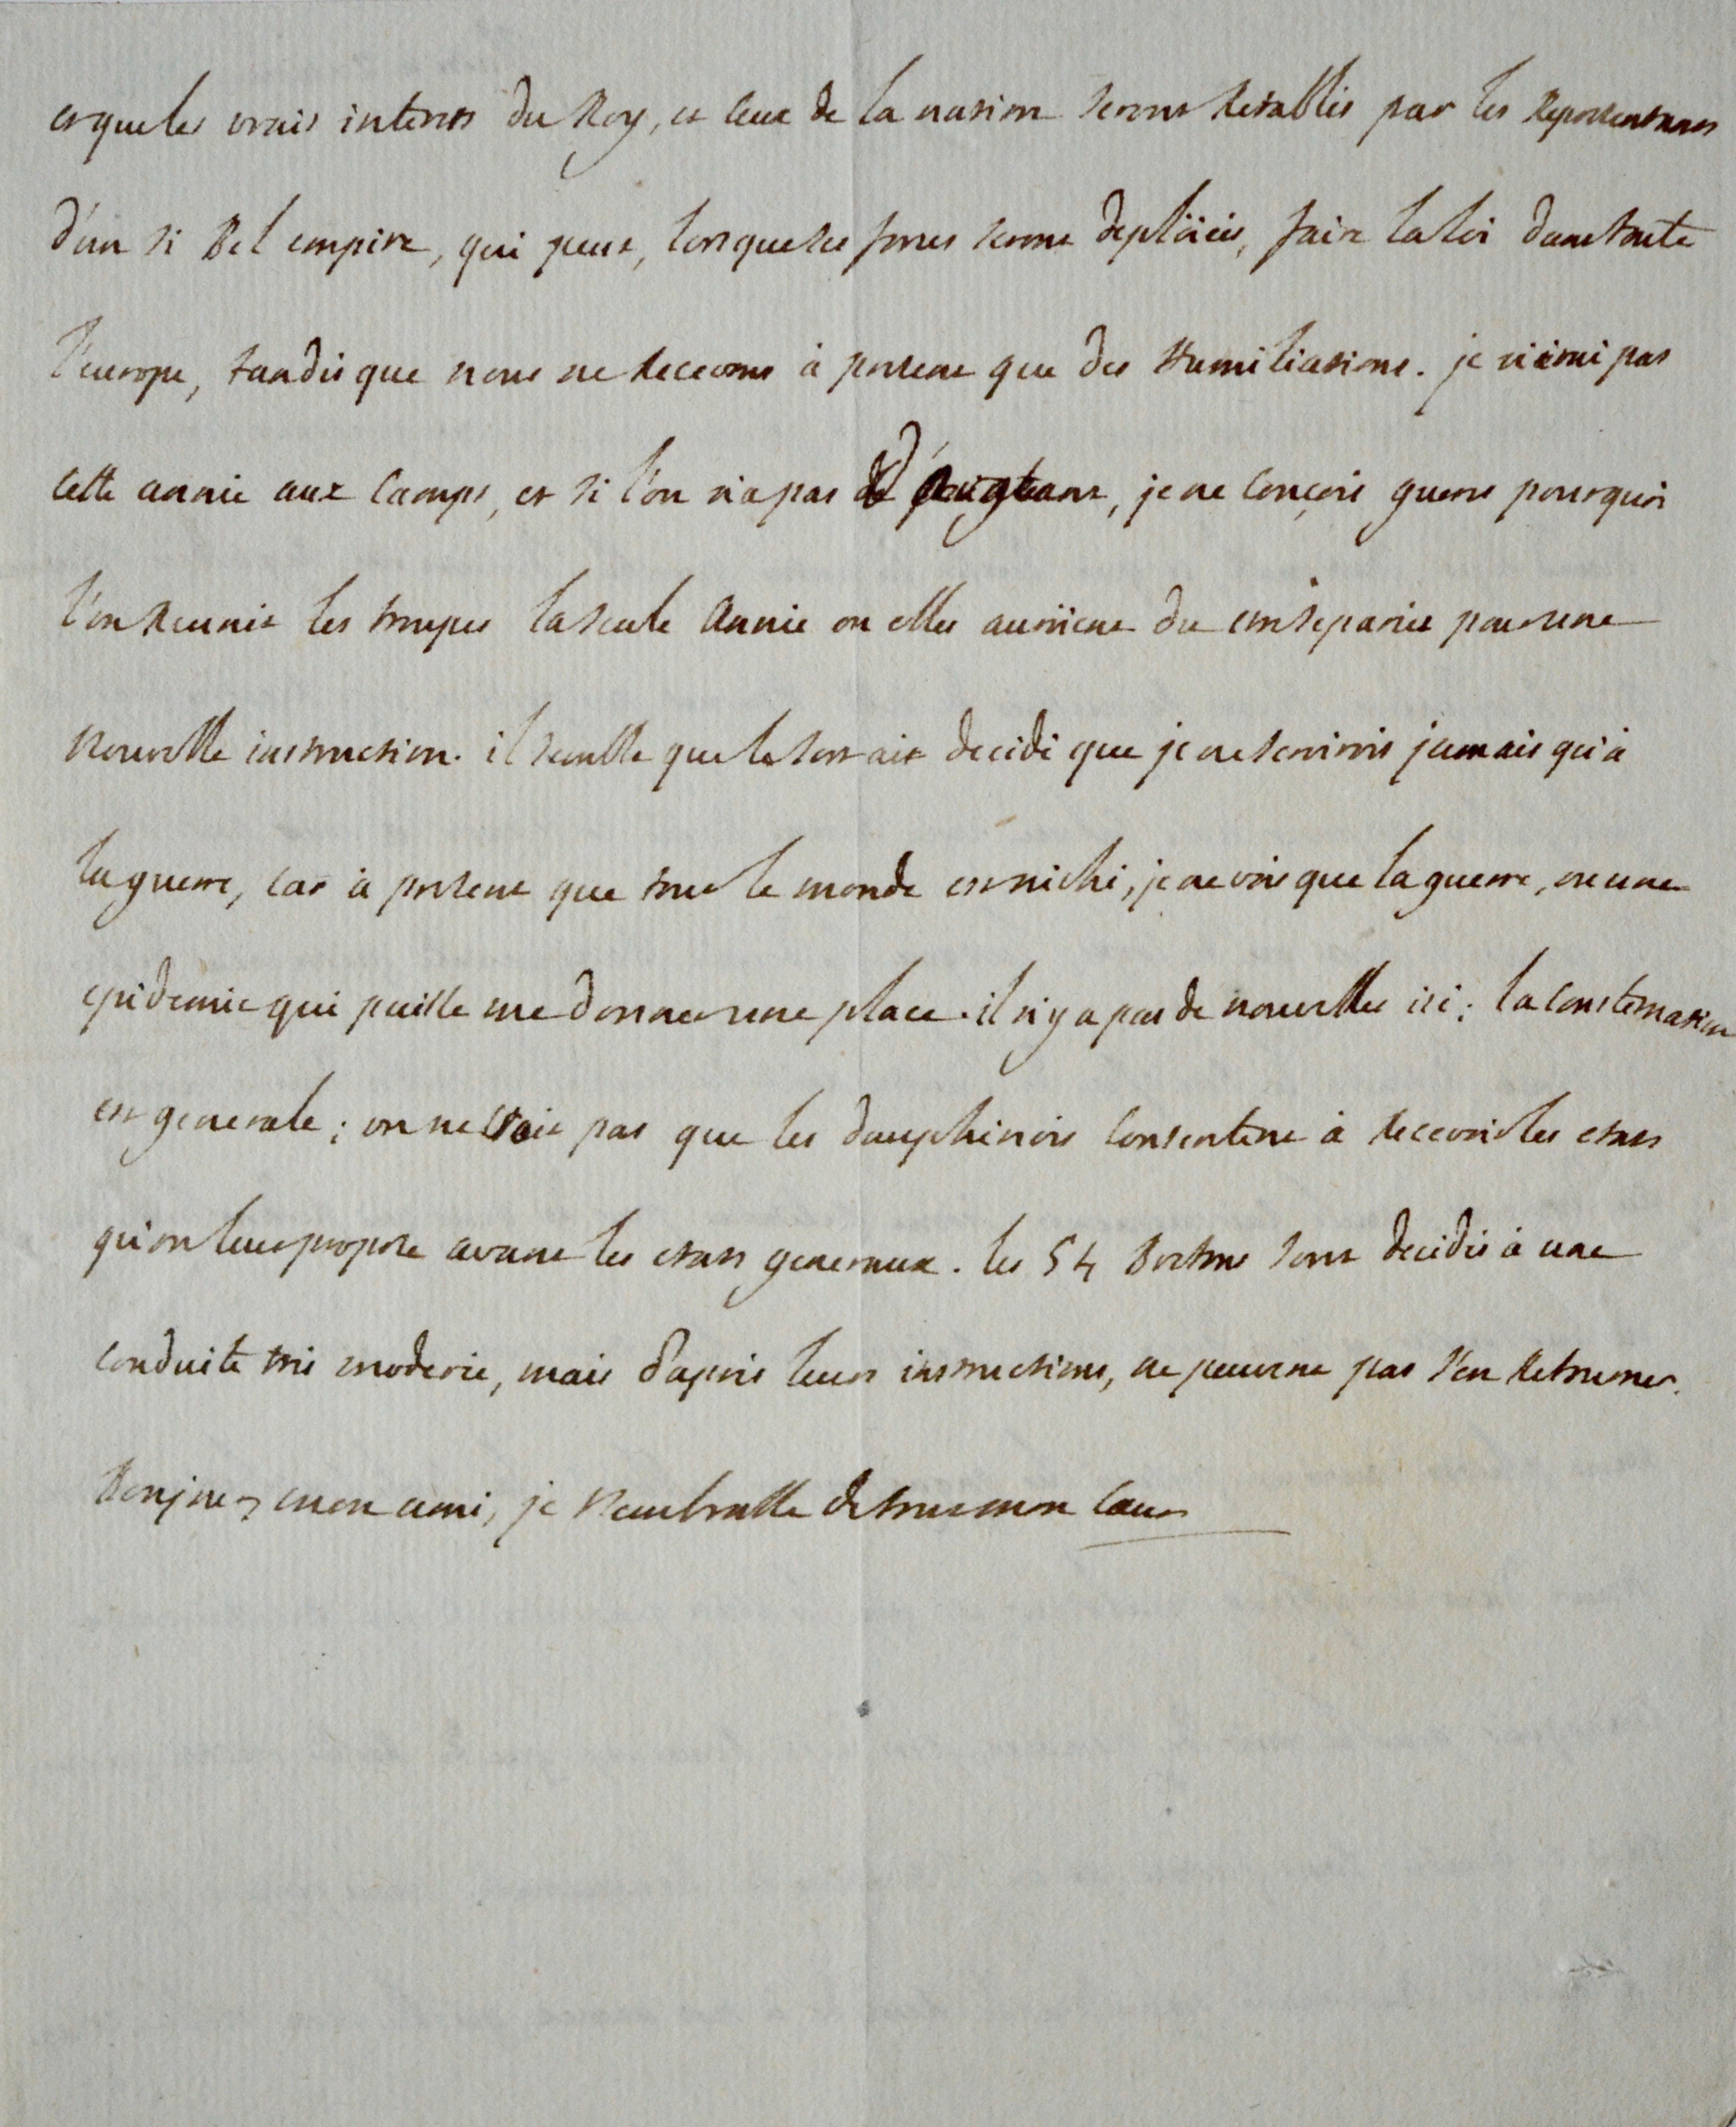 et que les vrais interets du Roy, et ceux de la nation seront Retablis par les Representans
d'un si Bel empire, qui peut, lorsque ses forces seront deploiées, faire la loi dans toute
l'europe, tandis que nous ne Recevons à present que des Humiliations. je n'irai pas
cette année aux camps, et si l'on n'a pas, je ne conçois guere pourquoi
l'on Reunit les troupes la seule Année ou elles auroient du etre separées pour une
nouvelle instruction. il semble que le sort ait decidé que je ne servirois jamais qu'à
la guerre, car à present que tout le monde est niché, je ne vois que la guerre, ou une
epidemie qui puisse me donner une place. il n'y a pas de nouvelles ici; la consternation
est generale; on ne croit pas que les dauphinois consentent à Recevoir les etats
qu'on leur propose avant les etats generaux. les 54 Bretons sont decidés à une
conduite très moderée, mais d'apres leurs instructions, ne peuvent pas s'en Retourner.
Bonjour, mon ami, je t'embrasse de tout mon coeur